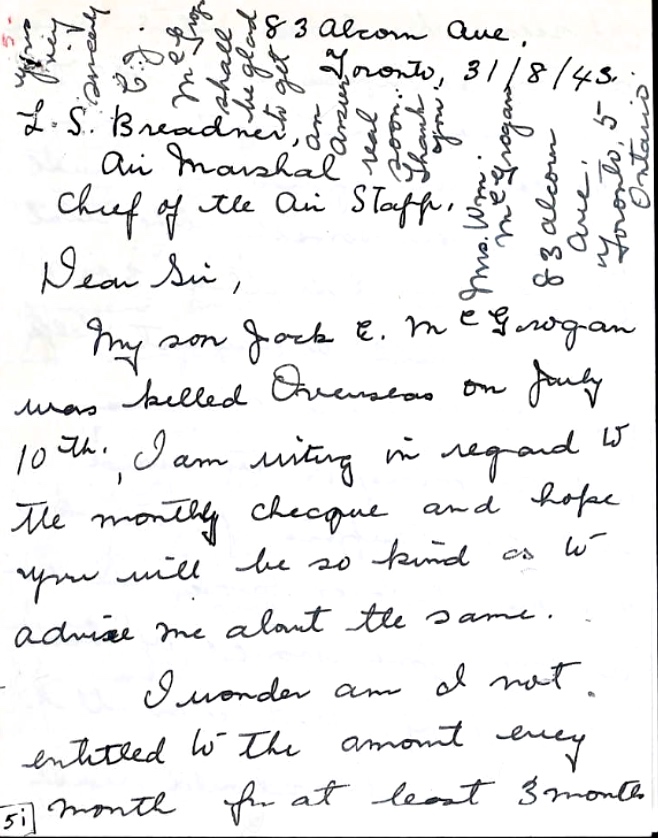 83 Alcorn Ave.
Toronto, 31/8/43.
L. S. Breadner,
Air Marshal
Chief of the Air Staff.
Dear Sir,
My son Jack E. McGrogan
was killed Overseas on July
10th., I am writing in regard to
the monthly checque and hope
you will be so kind as to
advise me about the same.
I wonder am I not
entitled to the amount every
month for at least 3 months
shall
be glad
to get
an
answer
real
soon.
Thank
you
Yours
very
sincerely
E. J.
Mrs. Wm.
McGrogan
83 Alcorn
Ave.,
Toronto, 5
Ontario
5i